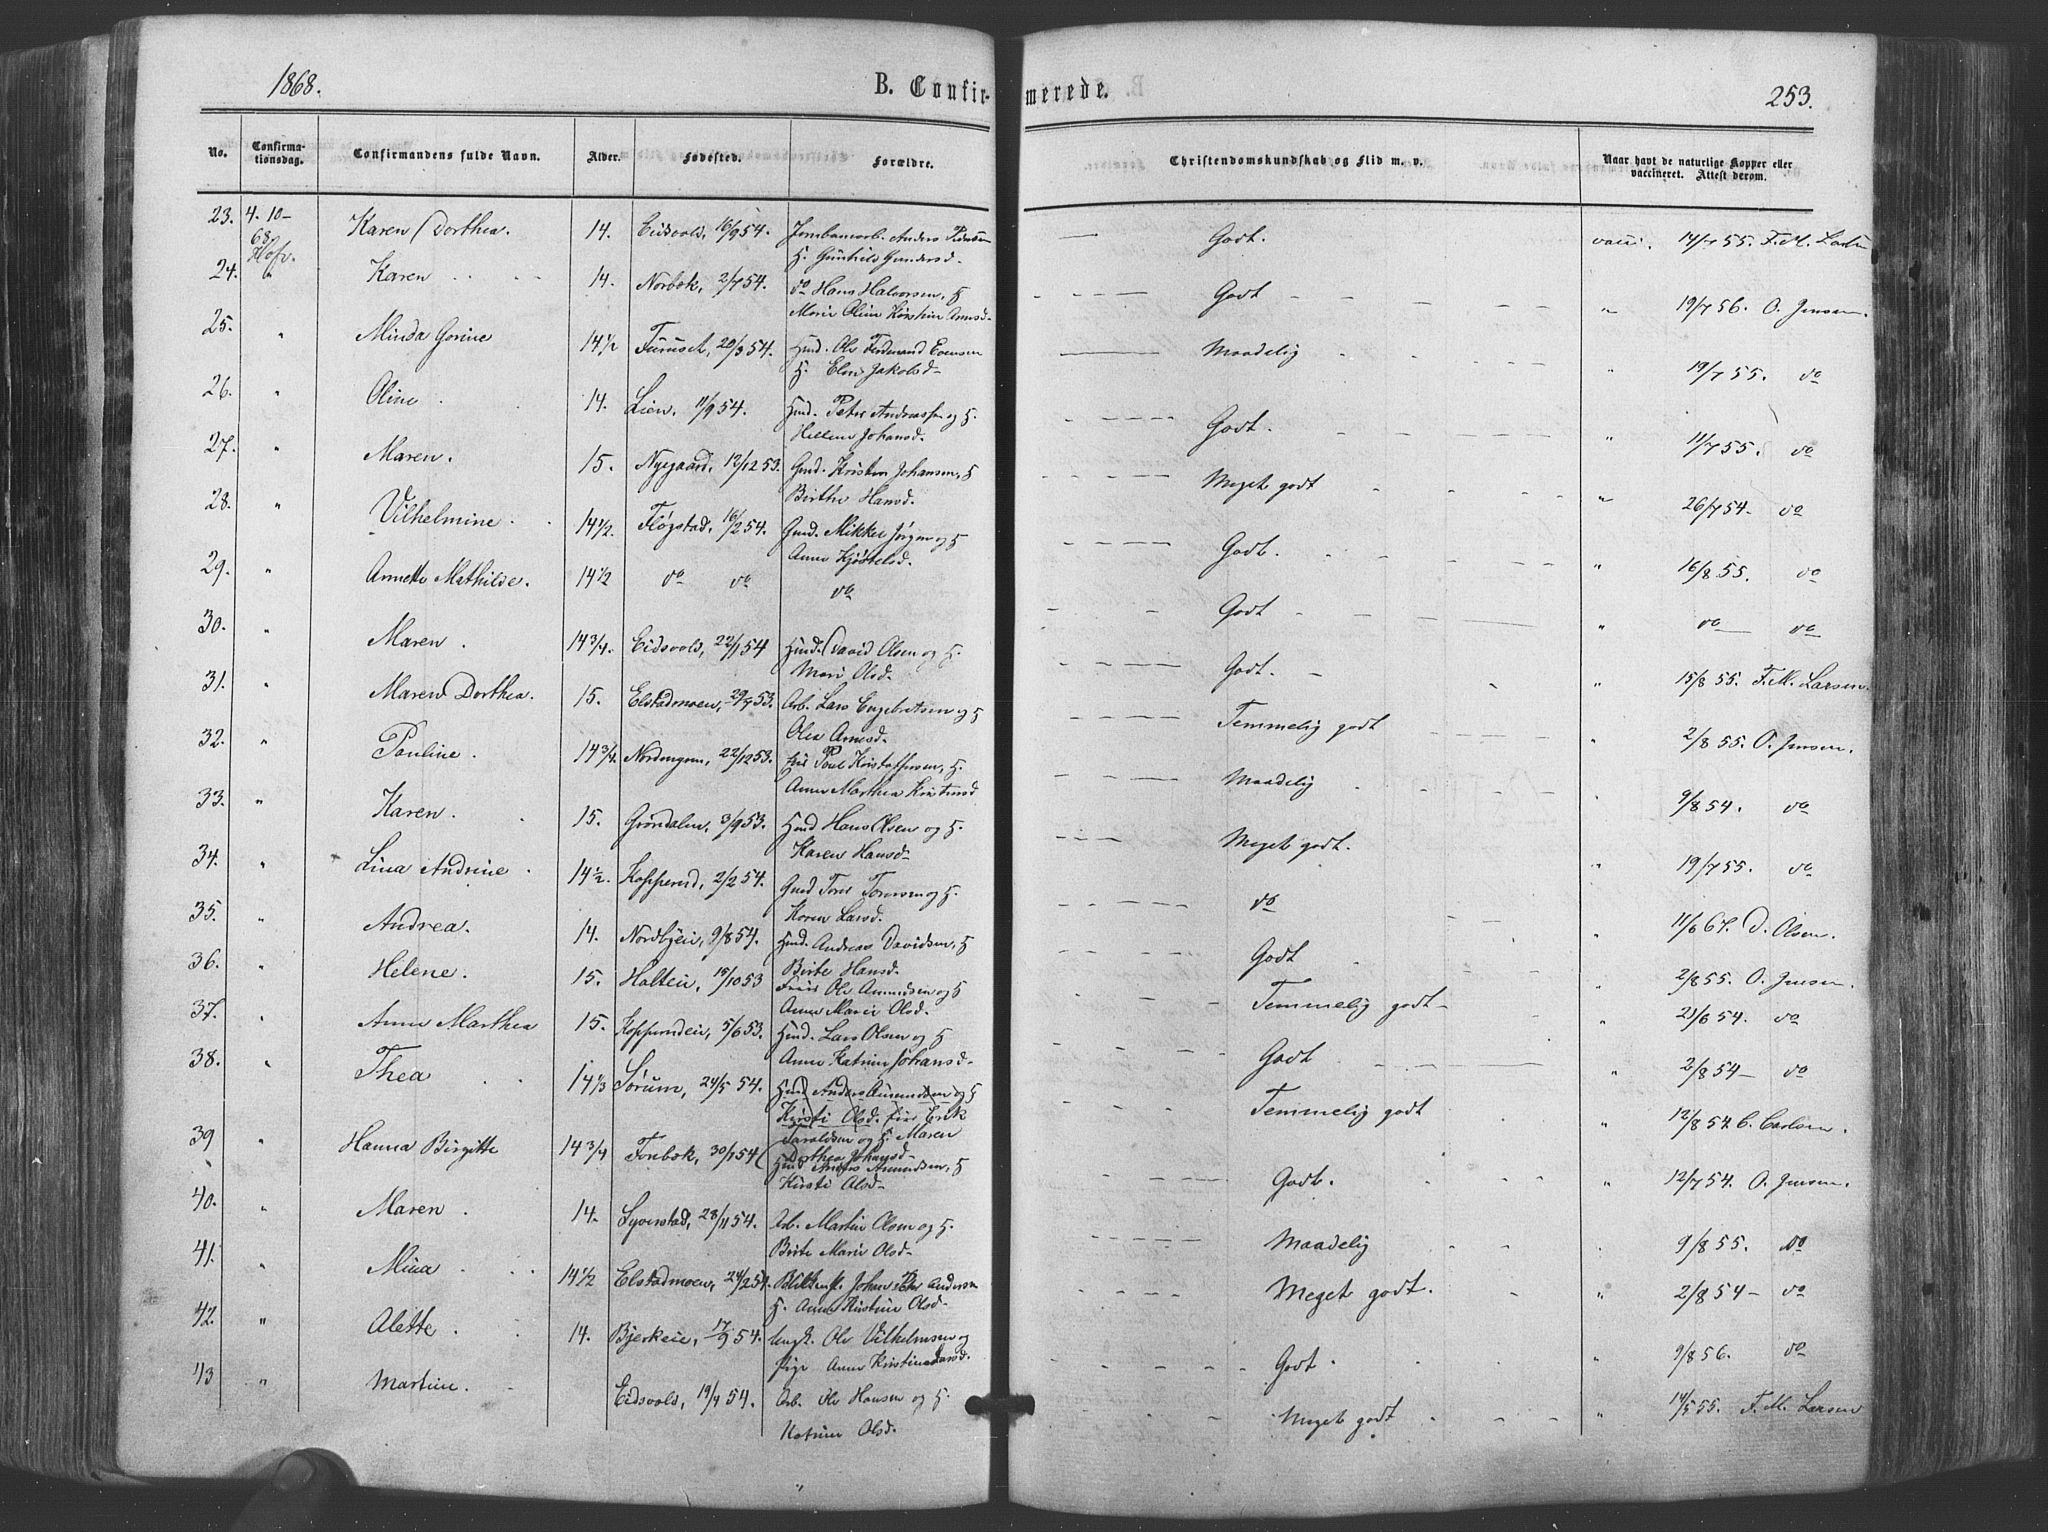 1868.
B. Confirmerede.
253.
No. Confirmationsdag. Confirmandens fulde Navn. Alder. Fødested. Forældre. Christendomskundskab og Flid m. v. Naar havt de naturlige Kopper eller vaccineret. Attest derom.
23. 4. 10- Karen Dorthea. 14. Eidsvold, 16/9 54. Jernbanearb. Anders Godt. vacci. 14/7 55. F. M. Larsen
68 H. Gunhild Gundersd.
Hofv.
24. " Karen 14. Norbæk, 2/7 54. do Hans Halvorsen, H. Godt " 19/7 56. O. Jensen.
Marie Oline Kirstine
25. " Minda Gorine 14 1/2 Furuset, 20/3 54. Hmd. Ole Ferdinand Evensen Maadelig " 19/7 55. do
H. Eline Jakobsd-
26. " Oline 14. Lien, 11/9 54. Hmd. Peter Andreassen og H. Godt. " 11/7 55. do
Hellene Johansd.
27. " Maren. 15. Nygaard, 12/12 53. Gmd. Kristen Johansen, H Meget godt " 26/7 54- do
Birthe Hansd.
28. " Vilhelmine 14 1/2. Fløgstad, 16/2 54. Gmd. Mikkel Jørgen og H Godt. " 16/8 55. do
Anne Kjøstelsd.
29. " Annette Mathilde. 14 1/2 do do do Godt " do do
30. " Maren. 14 3/4. Eidsvold, 22/1 54 Hmd. David Olsen og H. Godt. " 15/8 55. F. M. Larsen.
Mari Olsd.
31. " Maren Dorthea. 15. Elstadmoen, 29/9 53. Arb. Lars Engebretsen og H Temmelig godt " 2/8 55. O. Jensen.
Olea Arnesd.
32. " Pauline. 14 3/4. Nordengen, 22/12 53. Paul Kristoffersen, H. Maadelig " 9/8 54. do
Anne Marthea Kristensd.
33. " Karen. 15. Grøndalen, 3/9 53. Hmd Hans Olsen og H. Meget godt. " 19/7 55. do
Karen Hansd-
34. " Lina Andrine 14 1/2. Kopperud, 2/2 54. Gmd Tores Toresen og H. do " 11/6 67. D. Olsen.
Karen Larsd.
35. " Andrea. 14. Nordbyeie, 9/8 54. Hmd. Andreas Davidsen, H Godt " 2/8 55. O. Jensen.
Birte Hansd.
36. " Helene. 15. Holteie, 15/10 53 Ole Amundsen og H Temmelig godt- " 21/6 54. do
Anne Marie Olsd.
37. " Anne Marthea 15. Kopperudeie, 5/6 53. Hmd. Lars Olsen og H Godt " 2/8 54- do
Anne Katrine Johansd-
38. " Thea 14 1/3 Sørum, 24/5 54. Hmd Anders Amundsen og H Temmelig godt " 12/8 54. C. Carlsen.
Kirsti Olsd. Erik
Taraldsen og H. Maren
Dorthea Johansd-
39 " Hanna Birgitte 14 3/4 Fonbæk, 30/1 54 Hmd Anders Amundsen, H Godt. " 12/7 54. O. Jensen.
Kirsti Olsd-
40. " Maren 14. Syverstad, 28/11 54. Arb. Martin Olsen og H. Maadelig " 9/8 55. do
Birte Marie Olsd-
41. " Mina 14 1/2 Elstadmoen, 24/2 54. Johan Peter Andersen Meget godt. " 2/8 54- do
H. Anne Kirstine Olsd-
42. " Alette. 14. Bjerkeie, 17/9 54. Ungk. Ole Vilhelmsen og Godt " 9/8 56. do
Pige Anne Kristine Larsd.
43 " Martine. Eidsvold, 19/4 54. Arb. Ole Hansen og H. Meget godt " 14/5 55. F. M. Larsen
Katrine Olsd.